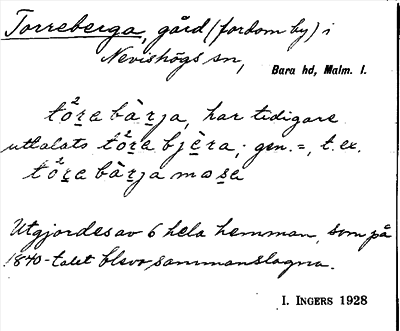 Torreberga, gård (fordom by) i
Nevishögs sn,
Bara hd, Malm. l.
tǒ̀ṟa bàṟja, har tidigare
uttalats tǒ̀ṟa bjèra; gen. =, t. ex.
tǒ̀ṟa bàrja mosa
Utgjordes av 6 hela hemman, som på
1840-talet blevo sammanslagna.
I. INGERS 1928